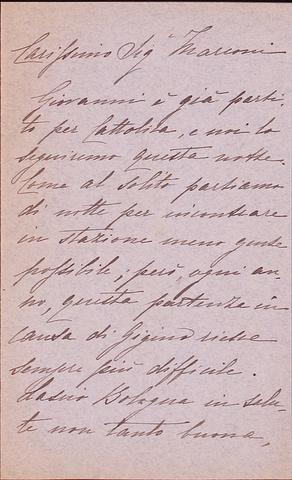 Carissimo Sig. Marconi
Giovanni è già parti-
to per Cattolica, e noi lo
seguiremo questa notte.
Come al solito partiamo
di notte per incontrare
in stazione meno gente
possibile; però, ogni an-
no, questa partenza in
causa di Gigino riesce
sempre più difficile.
Lascio Bologna in salu-
te non tanto buona,